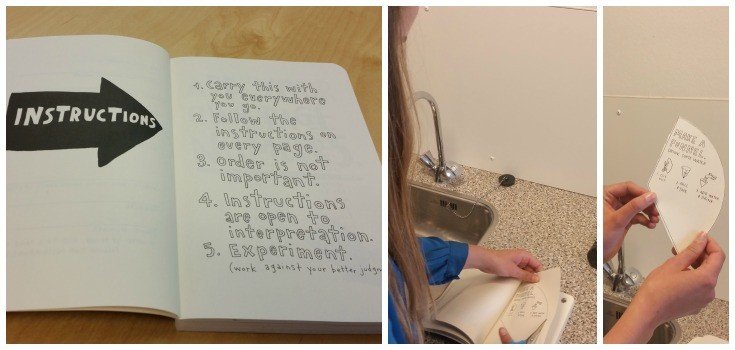 INSTRUCTIONS
1. Carry this with
you everywhere
you go.
2. Follow the
instructions on
every page.
3. Order is not
important.
4. Instructions
are open to
interpretation.
5. Experiment.
(work against your better
MAKE A
FUNNEL.